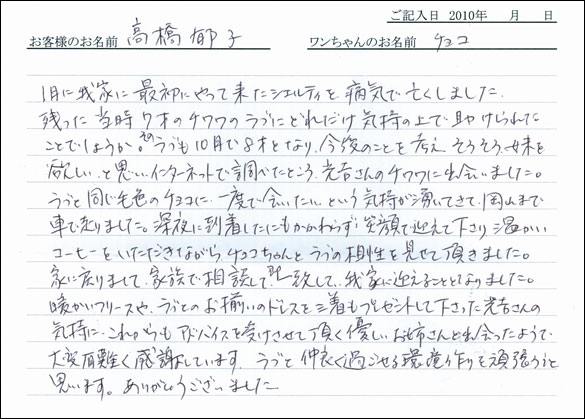 ご記入日 2010年 月 日
お客様のお名前 高橋郁子 ワンちゃんのお名前 チョコ
1月に我家に最初にやって来たシェルティを病気で亡くしました。
残った当時7才のチワワのラブにどれだけ気持の上で助けられた
ことでしょうか。そのラブも10月で8才となり、今後のことを考え そろそろ妹を
欲しいと思いインターネットで調べたところ、光吉さんのチワワに出会いました。
ラブと同じ毛色のチョコに、一度で会いたいという気持が湧いてきて、岡山まで
車で走りました。深夜に到着したにもかかわらず笑顔で迎えて下さり温かい
コーヒーをいただきながらチョコちゃんとラブの相性を見せて頂きました。
家に戻りまして、家族で相談して一致して、我家に迎えることとなりました。
暖かいフリースや、ラブとのお揃いのドレスを三着もプレゼントして下さった光吉さんの
気持に、これからもアドバイスを受けさせて頂く優しいお姉さんと出会ったようで
大変有難く感謝しています。ラブと仲良く過ごせる環境作りを頑張ろうと
思います。ありがとうございました